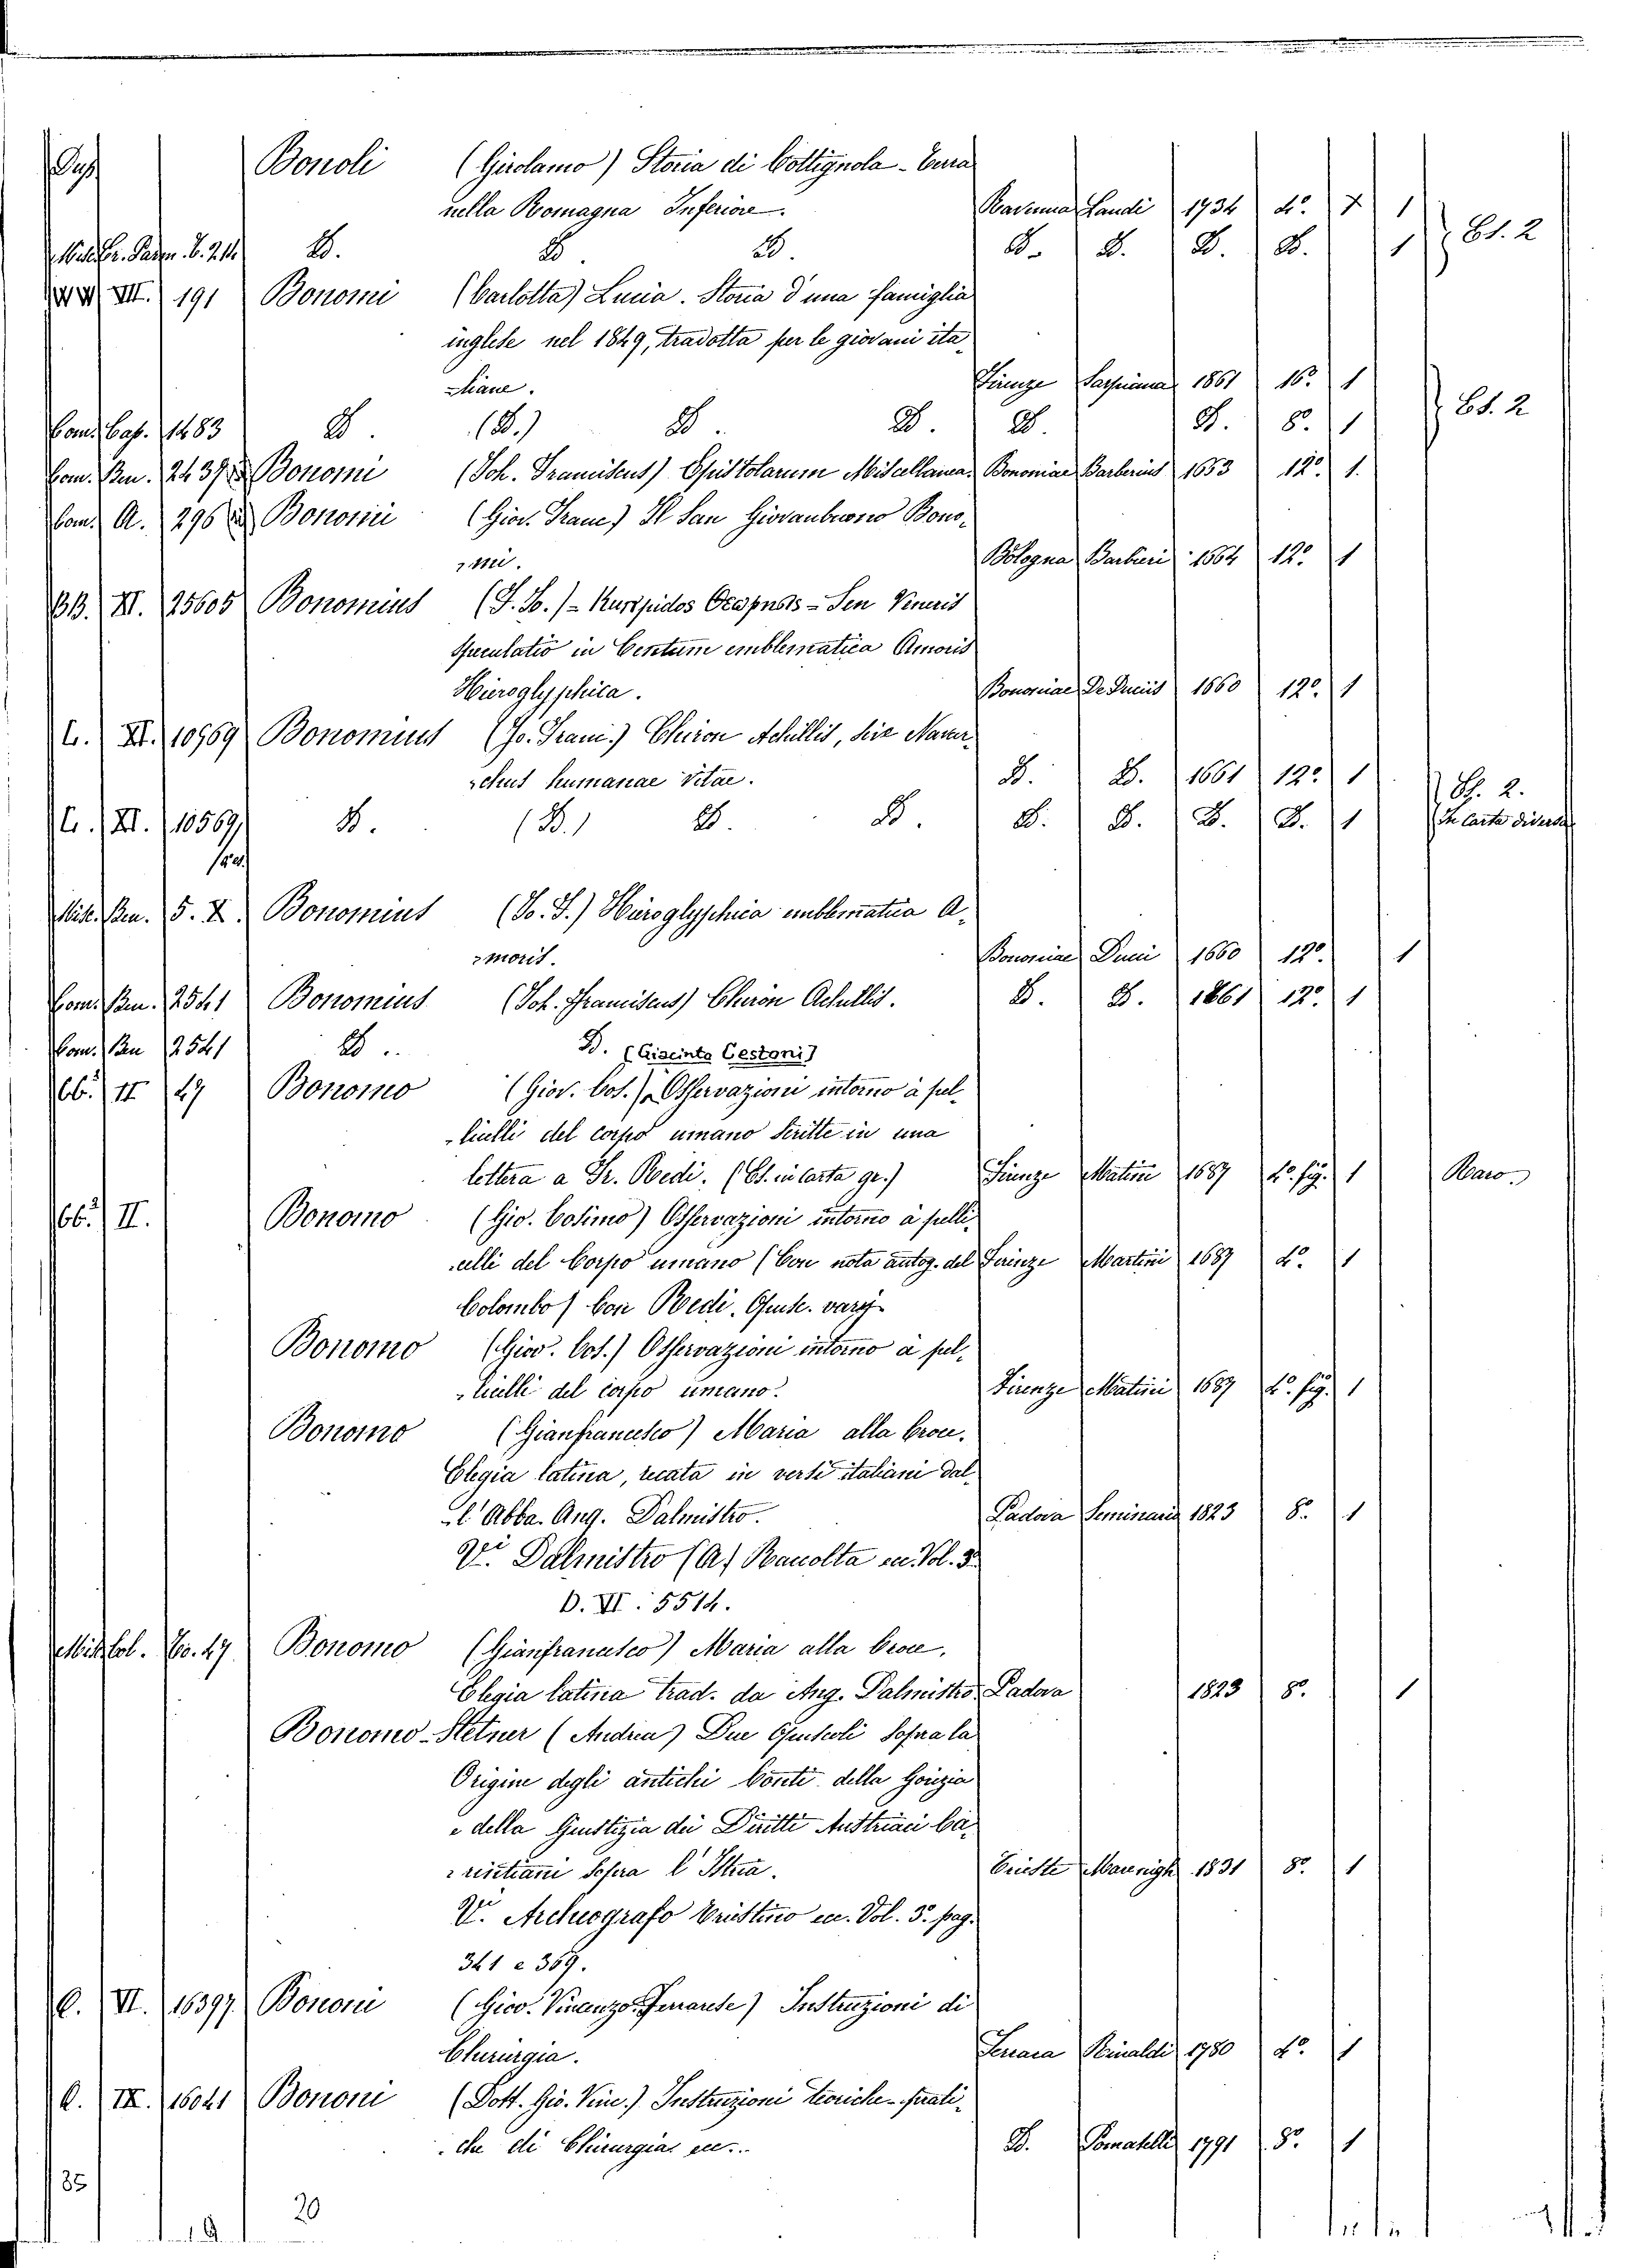 Dup Bonoli (Girolamo) Storia di Cottignola - Terra
nella Romagna Inferiore. Ravenna Landi 1734 4º. X 1
D. D. D. D. D. D. D. 1 Es. 2
VII. 191 Bonomi (Carlotta) Lucia. Storia d'una famiglia
inglese nel 1849, tradotta per le giovani ita-
-liane. Firenze 1861 16º. 1
Com. Cap. 1483 D. (D.) D. D. D. D. 8. 1 Es. 2
Com. Ben. 2437 Bonomi (Joh. Franciscus) Epistolarum Miscellanea. Bononiae Barberius 1653 12º. 1.
Com. A. 296 Bonomi (Giov. Franc) Il San Giovanbuono Bono-
-mi. Bologna Barbieri 1664 12º. 1
BB. XI. 25605 Bonomius (J. Fr.) - - Seu Veneris
Speculatio in Centum emblematica Amoris
Hieroglyphica. Bononiae De Duciis 1660 12º. 1
C. XI. 10569 Bonomius (Jo. Franc.) Chiron Achillis, sive Navar-
-chus humanae vitae. D. D. 1661 12º. 1
C. XI. 10569 D. (D.) D. D. D. D. D. D. 1 Es. 2.
In Carte diverse
Misc. Ben. 5. X. Bonomius (Jo. F.) Hieroglyphica emblematica A-
-moris. Bononiae Ducci 1660 12º. 1
Com. Ben. 2541 Bonomius (Joh. Franciscus) Chiron Achillis. D. D. 1661 12º. 1
Com. Ben 2541 D. D. (Giacinto Cestoni)
66. II 27 Bonomo (Giov. Cos.) Osservazioni intorno à pel-
-licelli del corpo umano scritte in una
lettera a Fr. Redi. (Es. in carta gr.) Firenze Matini 1687 4º. fig. 1 Raro
66.² II. Bonomo (Gio. Cosimo) Osservazioni intorno à pelli-
-celli del Corpo umano (Con nota autog. del Firenze Martini 1687 4º. 1
Colombo) Con Redi. Opusc. varj
Bonomo (Giov. Cos.) Osservazioni intorno a pel-
-licelli del corpo umano. Firenze Matini 1687 4º. fig. 1
Bonomo (Gianfrancesco) Maria alla Croce.
Elegia latina, recata in versi italiani dal-
-l'Abba. Ang. Dalmistro. Padova Seminario 1823 8º. 1
Vi. Dalmistro (A) Raccolta ec. Vol. 3º
D. VI. 5514.
Misc. Col. Co. 47 Bonomo (Gianfrancesco) Maria alla Croce.
Elegia latina trad. da Ang. Dalmistro. Padova 1823 8º. 1
Bonomo-Stetner (Andrea) Due Opuscoli sopra la
Origine degli antichi Conti della Gorizia
e della Giustizia dei Diritti Austriaci Ca-
-rintiani sopra l'Istria. Trieste Marenigh 1831 8º. 1
Vi. Archeografo Triestino ec. Vol. 3º. pag.
341 e 369.
C. VI. 16397 Bononi (Giov. Vincenzo Ferrarese) Instruzioni di
Chirurgia. Ferrara Rinaldi 1780 4º. 1
C. IX. 16041 Bononi (Dott. Gio. Vinc.) Instruzioni teoriche-prati-
-che di Chirurgia ec.. D. Pomatelli 1791 8º. 1
35
20